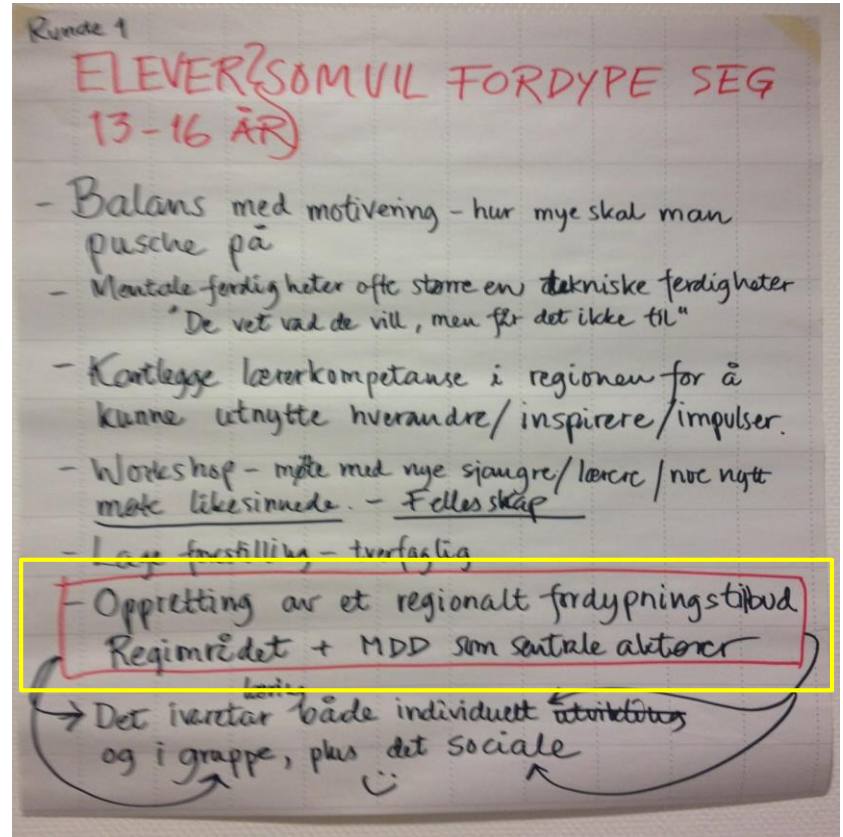 Runde 1
ELEVER SOM VIL FORDYPE SEG
13-16 ÅR
- Balans med motivering - hur mye skal man
pusche på
- Mentale ferdigheter ofte større en tekniske ferdigheter
"De vet vad de vill, men får det ikke til"
- Kartlegge lærerkompetanse i regionen for å
kunne utnytte hverandre/inspirere/impulser.
- Workshop - møte med nye sjangre/lærere/noe nytt
møte likesinnede. - Fellesskap
- Lage forestilling - tverfaglig
- Oppretting av et regionalt fordypningstilbud
Regionrådet + MDD som sentrale aktører
læring
→ Det ivaretar både individuelt utvikling
og i gruppe, plus det sociale